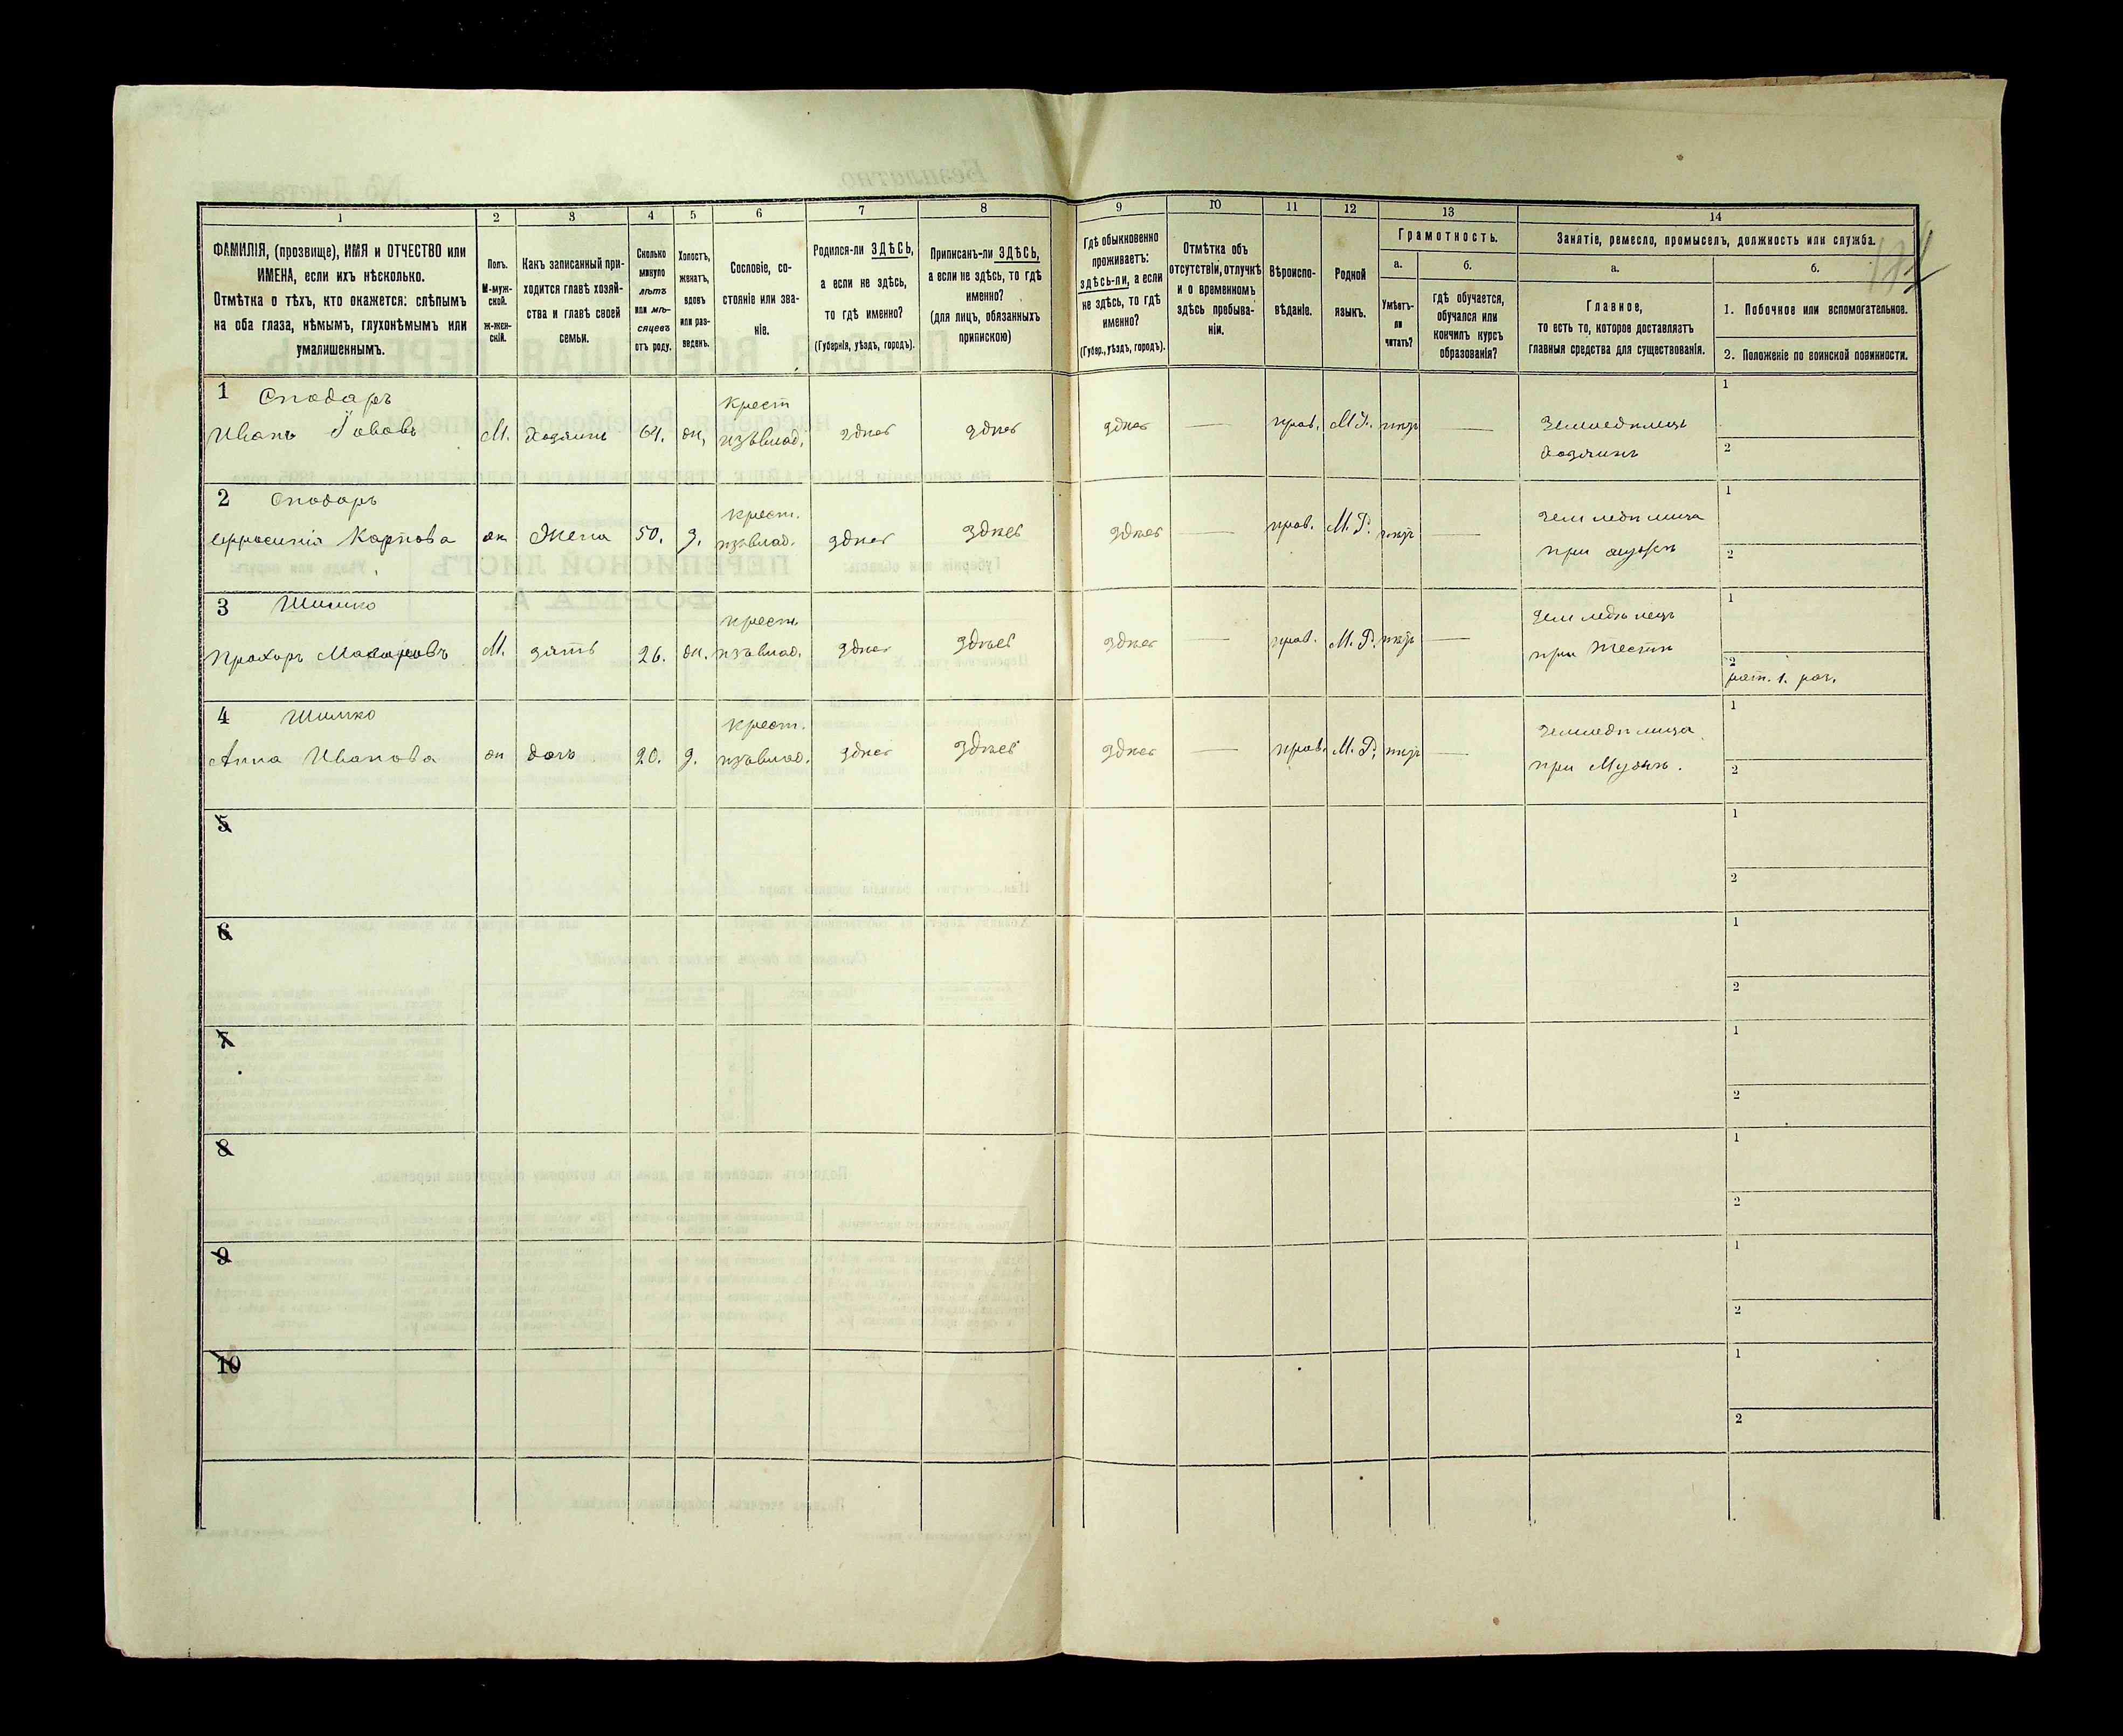 1 2 3 4 5 6 7 8 9 10 11 12 13 14
ФАМИЛІЯ, (прозвище), ИМЯ и ОТЧЕСТВО или
ИМЕНА, если ихъ нѣсколько.
Отмѣтка о тѣхъ, кто окажется: слѣпымъ
на оба глаза, нѣмымъ, глухонѣмымъ или
умалишеннымъ.
Полъ.
М-муж-
ской.
ж-жен-
скій.
Какъ записанный при-
ходится главѣ хозяй-
ства и главѣ своей
семьи.
Сколько
минуло
лѣтъ
или мѣ-
сяцевъ
отъ роду.
Холостъ,
женатъ,
вдовъ
или раз-
веденъ.
Сословіе, со-
стояніе или зва-
ніе.
Родился-ли ЗДѢСЬ,
а если не здѣсь,
то гдѣ именно?
(Губернія, уѣздъ, городъ).
Приписанъ-ли ЗДѢСЬ,
а если не здѣсь, то гдѣ
именно?
(для лицъ, обязанныхъ
припискою)
Гдѣ обыкновенно
проживаетъ:
здѣсь-ли, а если
не здѣсь, то гдѣ
именно?
(Губер., уѣздъ, городъ).
Отмѣтка объ
отсутствіи, отлучкѣ
и о временномъ
здѣсь пребыва-
ніи.
Вѣроиспо-
вѣданіе.
Родной
языкъ.
Грамотность.
а.
Умѣетъ-
ли
читать?
б.
гдѣ обучается,
обучался или
кончилъ курсъ
образованія?
Занятіе, ремесло, промыселъ, должность или служба.
а.
Главное,
то есть то, которое доставляетъ
главныя средства для существованія.
б.
1. Побочное или вспомогательное.
2. Положеніе по воинской повинности.
1 Сподаръ крест 1
Иванъ Іововъ М. Хозяинъ 64. ж. изъ влад. здѣсь здѣсь здѣсь — прав. М. Р. нѣтъ — Земледѣлецъ
хозяинъ 2
2 Сподаръ крест. 1
Ефросинія Карпова ж Жена 50. з. изъ влад. здѣсь здѣсь здѣсь — прав. М. Р. нѣтъ — земледѣлица
при мужѣ 2
3 Шишко крест. 1
Прохоръ Макаровъ М. зять 26. ж. изъ влад. здѣсь здѣсь здѣсь — прав. М. Р. нѣтъ — земледѣлецъ
при тестѣ 2
рат. 1. раз.
4 Шишко крест. 1
Анна Иванова ж дочь 20. з. изъ влад. здѣсь здѣсь здѣсь — прав. М. Р. нѣтъ — земледѣлица
при Мужѣ. 2
5 1
2
6 1
2
7 1
2
8 1
2
9 1
2
10 1
2